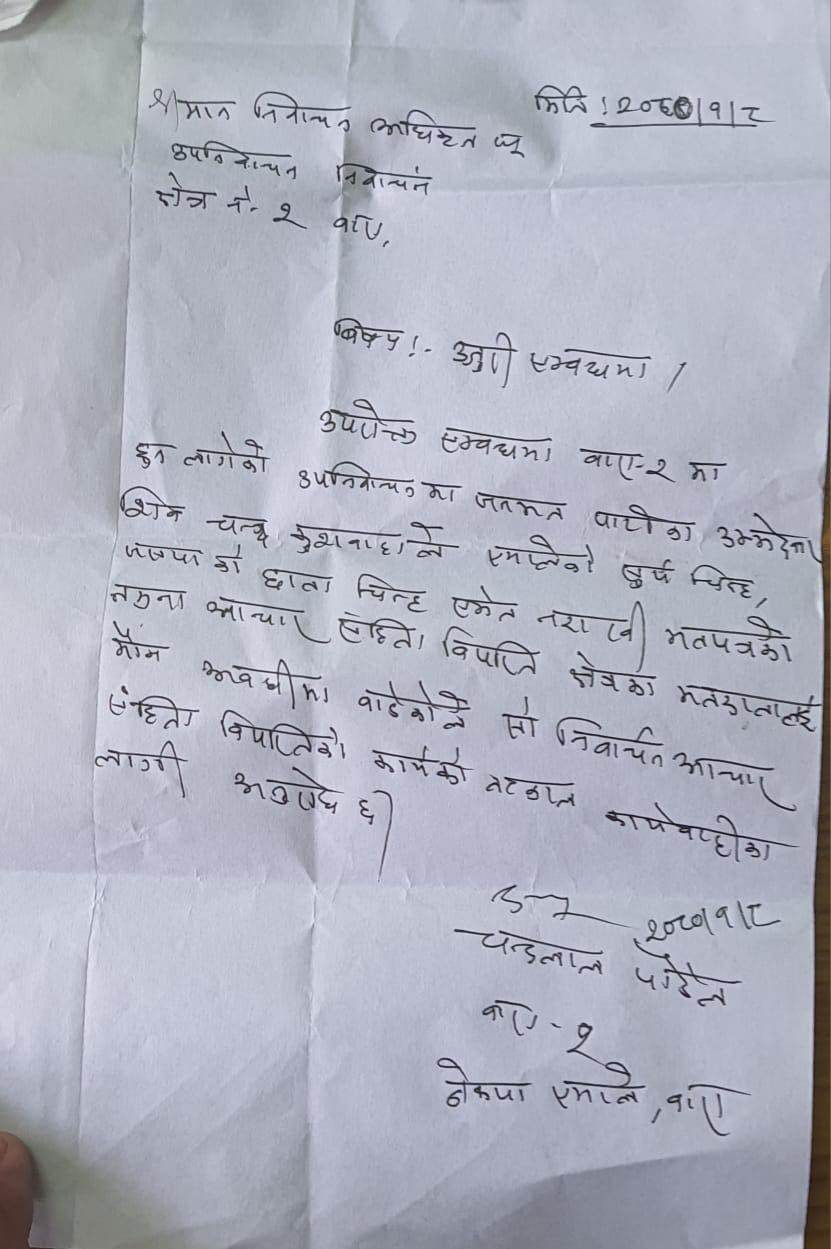 मिति : २०८०।१।८
श्रीमान निर्वाचन अधिकृत ज्यू
उपनिर्वाचन निर्वाचन
क्षेत्र नं. २ बारा,
बिषय :- उजुरी सम्बन्धमा ।
उपरोक्त सम्बन्धमा बारा-२ मा
हुन लागेको उपनिर्वाचनमा जनमत पार्टीका उम्मेदवार
शिव चन्द्र कुशवाहाले एमालेको सुर्य चिन्ह,
जसपा को छाता चिन्ह समेत नराखी मतपत्रको
नमुना आचार संहिता विपरित क्षेत्रका मतदातालाई
मौन अवधीमा बाडेकोले सो निर्वाचन आचार
संहिता विपरितको कार्यको तत्काल कार्यवाहीका
लागी अनुरोध छ।
२०८०।१।८
चन्द्रलाल पौडेल
बारा - २
नेकपा एमाले, बारा